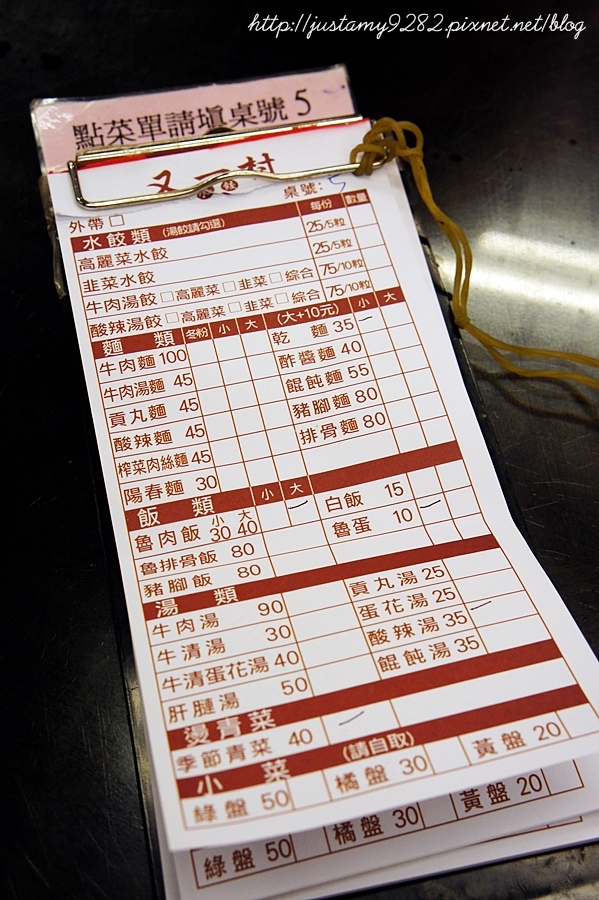 http://justamy9282.pixnet.net/blog
點菜單請塡桌號 5
又一村
桌號: 5
外帶 □
水餃類 (湯餃請勾選) 每份 數量
高麗菜水餃 25/5粒
韭菜水餃 25/5粒
牛肉湯餃 □高麗菜 □韭菜 □綜合 75/10粒
酸辣湯餃 □高麗菜 □韭菜 □綜合 75/10粒
麵類 冬粉 小 大 (大+10元) 小 大
牛肉麵 100 乾麵 35
牛肉湯麵 45 酢醬麵 40
貢丸麵 45 餛飩麵 55
酸辣麵 45 豬腳麵 80
榨菜肉絲麵 45 排骨麵 80
陽春麵 30
飯類 小 大
魯肉飯 小30 大40 白飯 15
魯排骨飯 80 魯蛋 10
豬腳飯 80
湯類
牛肉湯 90 貢丸湯 25
牛清湯 30 蛋花湯 25
牛清蛋花湯 40 酸辣湯 35
肝腱湯 50 餛飩湯 35
燙青菜
季節青菜 40
小菜 (請自取)
綠盤 50 橘盤 30 黃盤 20
綠盤 50 橘盤 30 黃盤 20